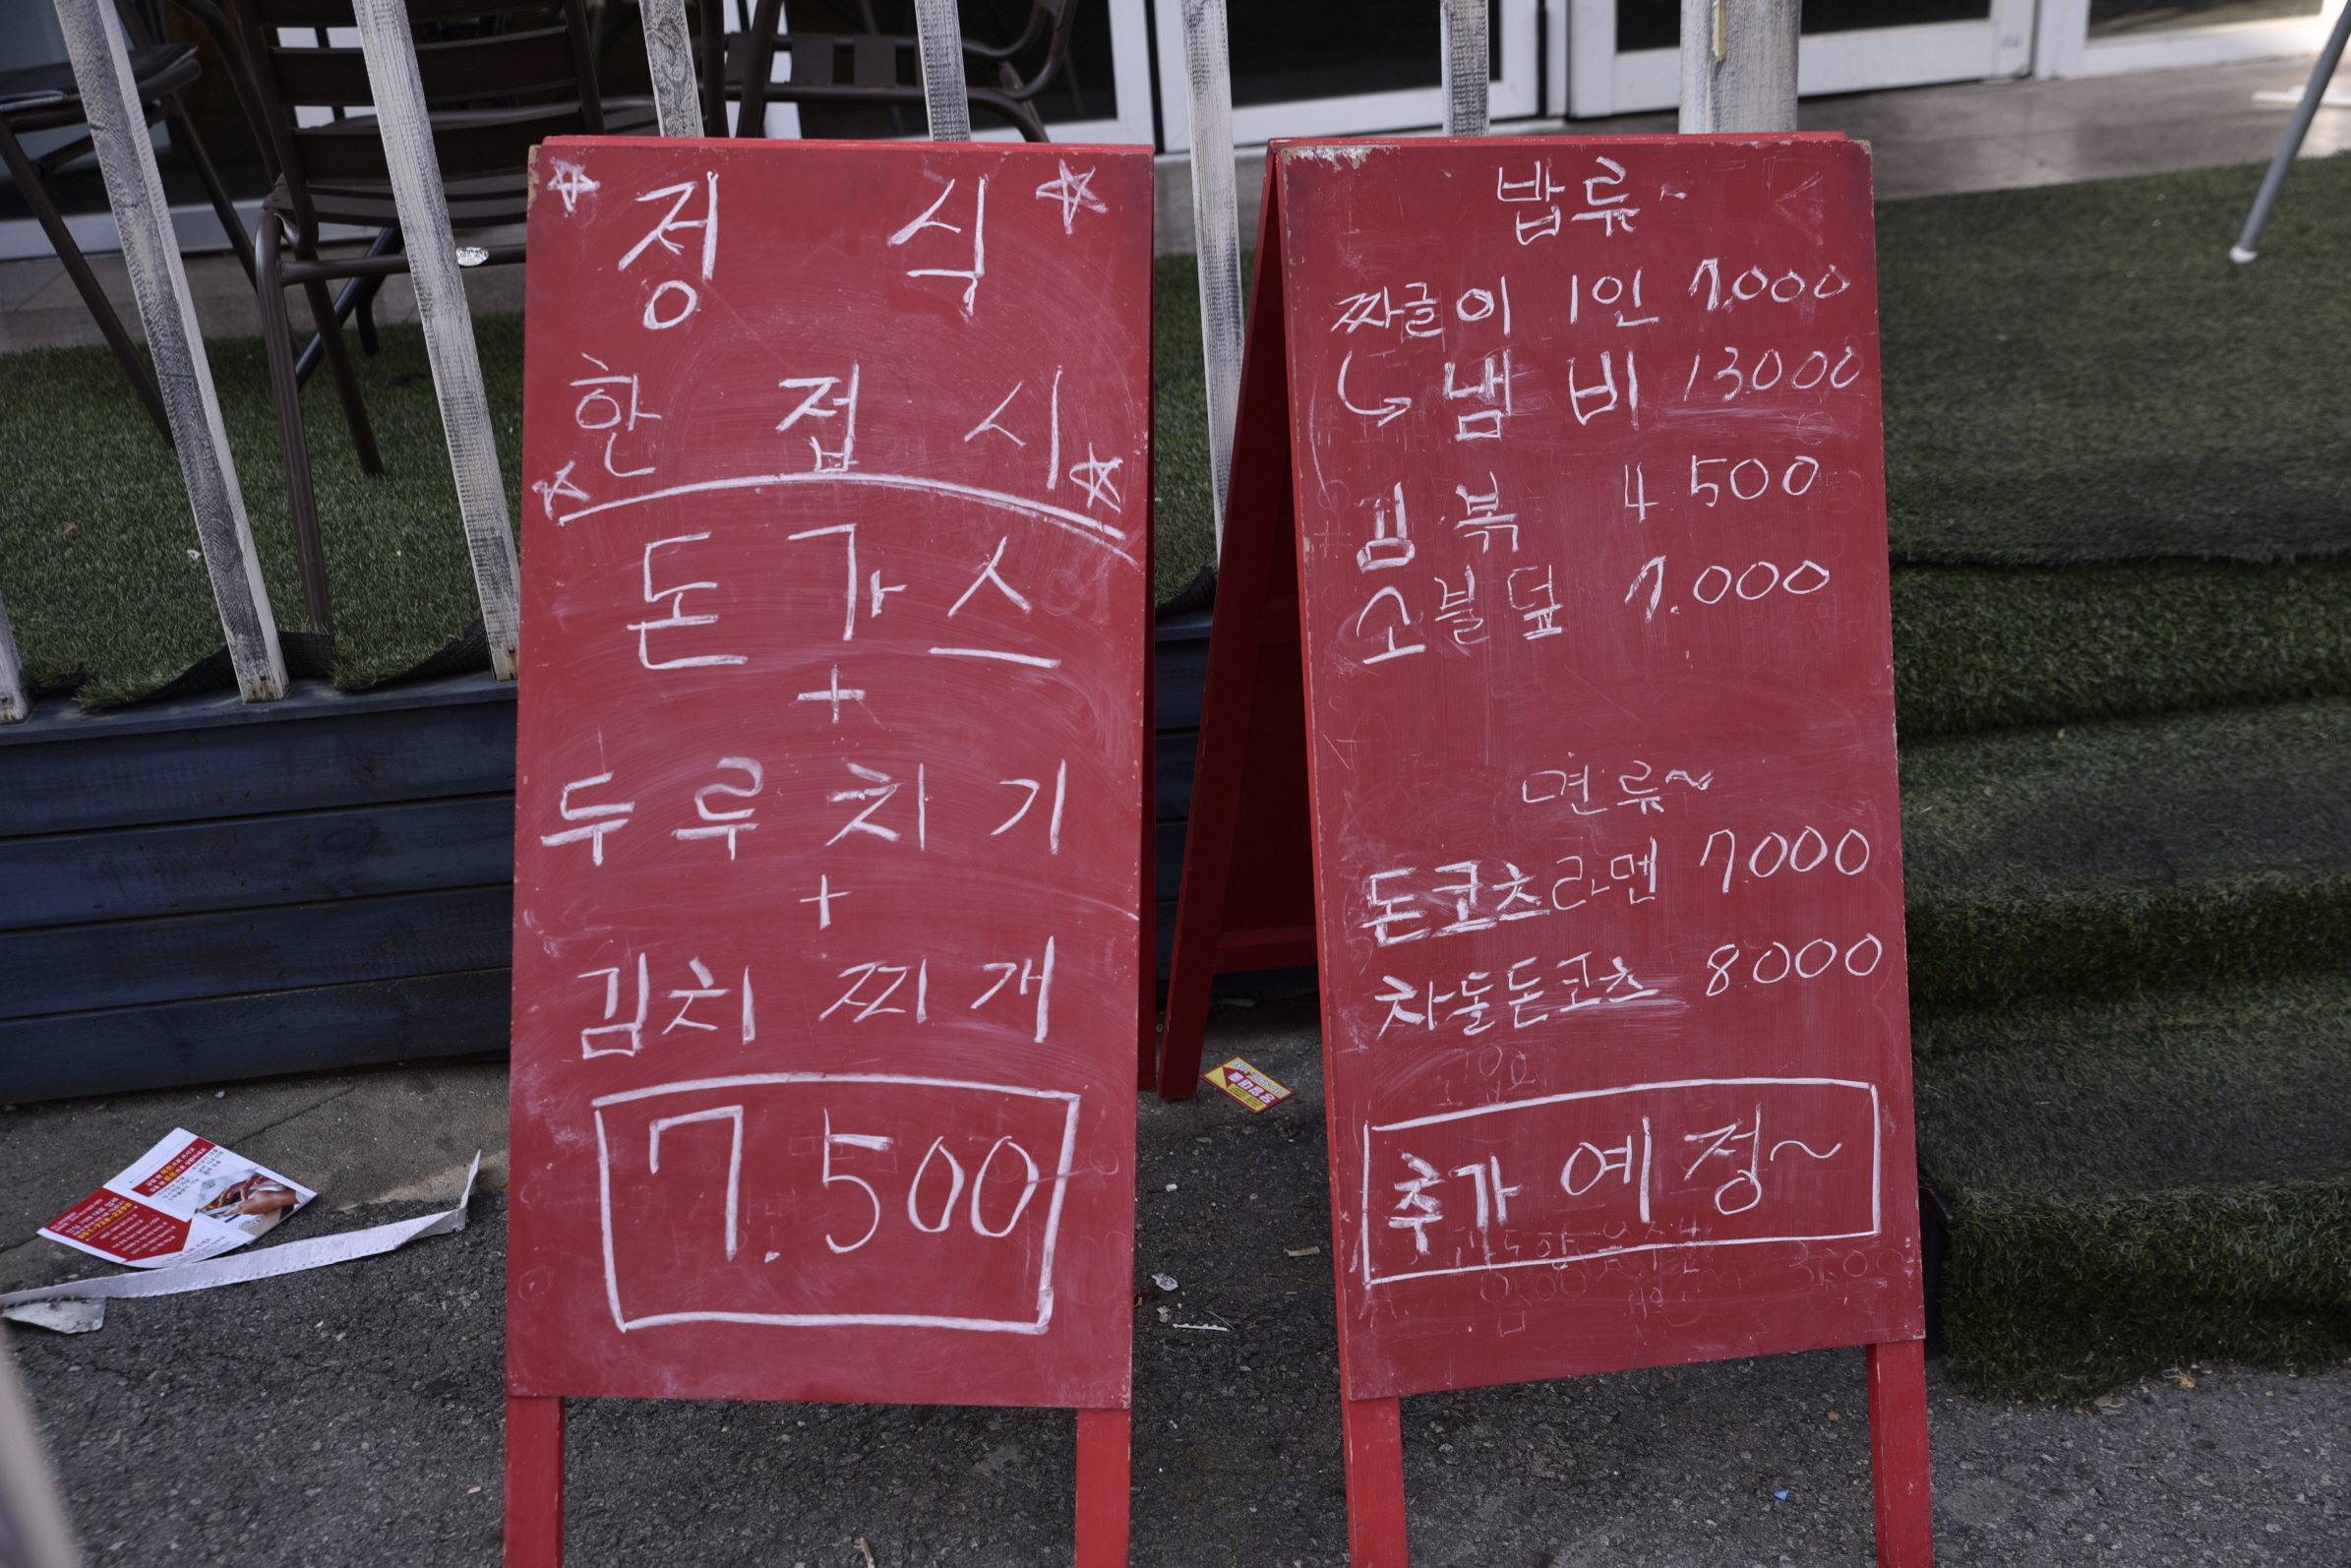 정 식
한 접 시
돈 가 스
+
두 루 치 기
+
김 치 찌 개
7.500
밥류~
짜글이 1인 7.000
냄 비 13000
김 볶 4 500
소 불 덮 7.000
면 류~
돈코츠라멘 7.000
차돌돈코츠 8.000
추가 예정~